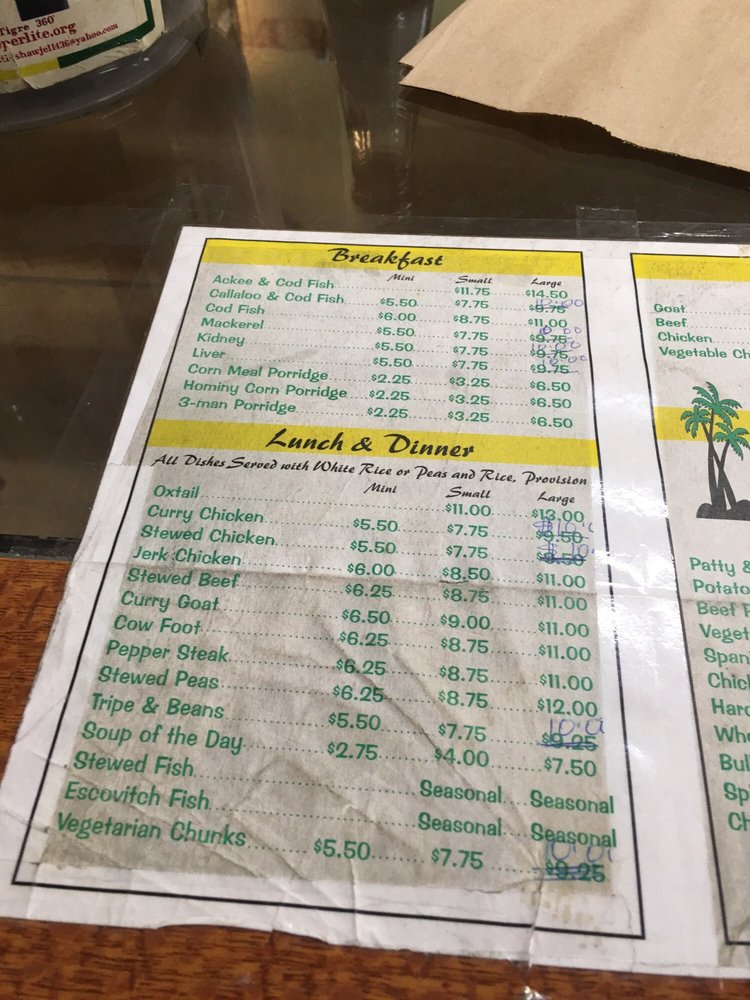 Tigre 360°
perlite.org
shawjel1436@yahoo.com
Breakfast
Mini Small Large
Ackee & Cod Fish $11.75 $14.50
Callaloo & Cod Fish $5.50 $7.75 $9.75 10.00
Cod Fish $6.00 $8.75 $11.00
Mackerel $5.50 $7.75 $9.75 10.00
Kidney $5.50 $7.75 $9.75 10.00
Liver $5.50 $7.75 $9.75 10.00
Corn Meal Porridge $2.25 $3.25 $6.50
Hominy Corn Porridge $2.25 $3.25 $6.50
3-man Porridge $2.25 $3.25 $6.50
Lunch & Dinner
All Dishes Served with White Rice or Peas and Rice, Provision
Mini Small Large
Oxtail $11.00 $13.00
Curry Chicken $5.50 $7.75 $9.50 $10.0
Stewed Chicken $5.50 $7.75 $9.50 $10.
Jerk Chicken $6.00 $8.50 $11.00
Stewed Beef $6.25 $8.75 $11.00
Curry Goat $6.50 $9.00 $11.00
Cow Foot $6.25 $8.75 $11.00
Pepper Steak $6.25 $8.75 $11.00
Stewed Peas $6.25 $8.75 $12.00
Tripe & Beans $5.50 $7.75 $9.25 10.0
Soup of the Day $2.75 $4.00 $7.50
Stewed Fish Seasonal Seasonal
Escovitch Fish Seasonal Seasonal
Vegetarian Chunks $5.50 $7.75 $9.25 10.00
Goat
Beef
Chicken
Vegetable Ch
Patty &
Potato
Beef
Veget
Span
Chic
Hard
Who
Bul
Sp
Ch